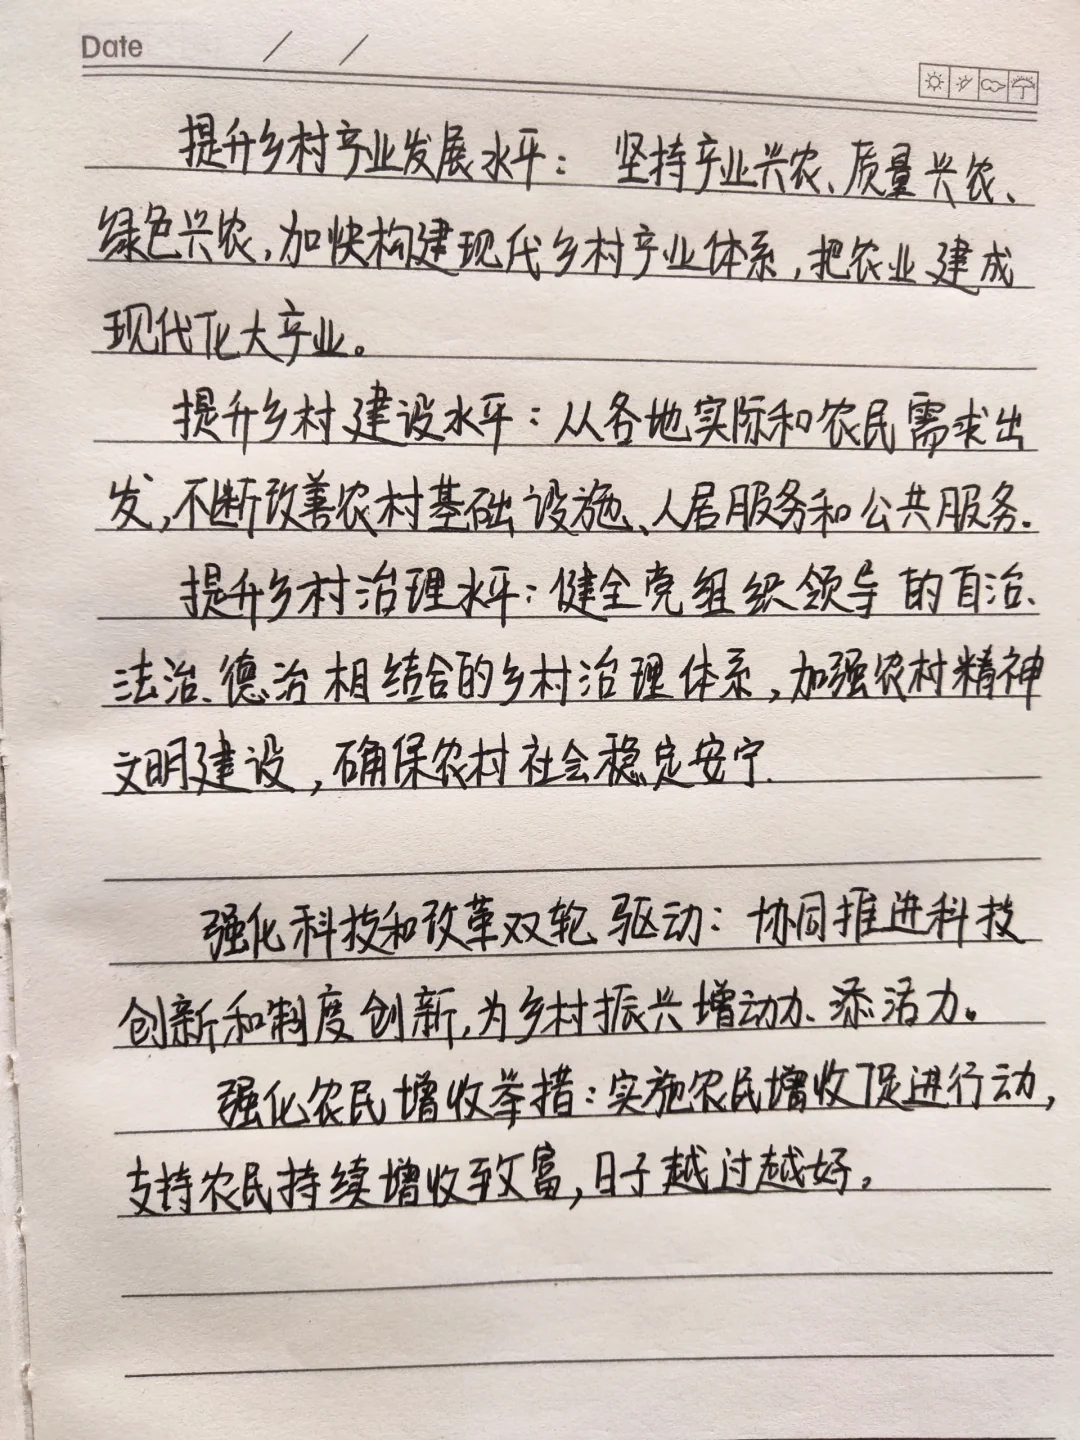 Date / /
提升乡村产业发展水平： 坚持产业兴农、质量兴农、
绿色兴农,加快构建现代乡村产业体系,把农业建成
现代化大产业。
提升乡村建设水平：从各地实际和农民需求出
发,不断改善农村基础设施、人居服务和公共服务.
提升乡村治理水平：健全党组织领导的自治、
法治、德治相结合的乡村治理体系,加强农村精神
文明建设,确保农村社会稳定安宁.
强化科技和改革双轮驱动：协同推进科技
创新和制度创新,为乡村振兴增动力、添活力。
强化农民增收举措：实施农民增收促进行动,
支持农民持续增收致富,日子越过越好。